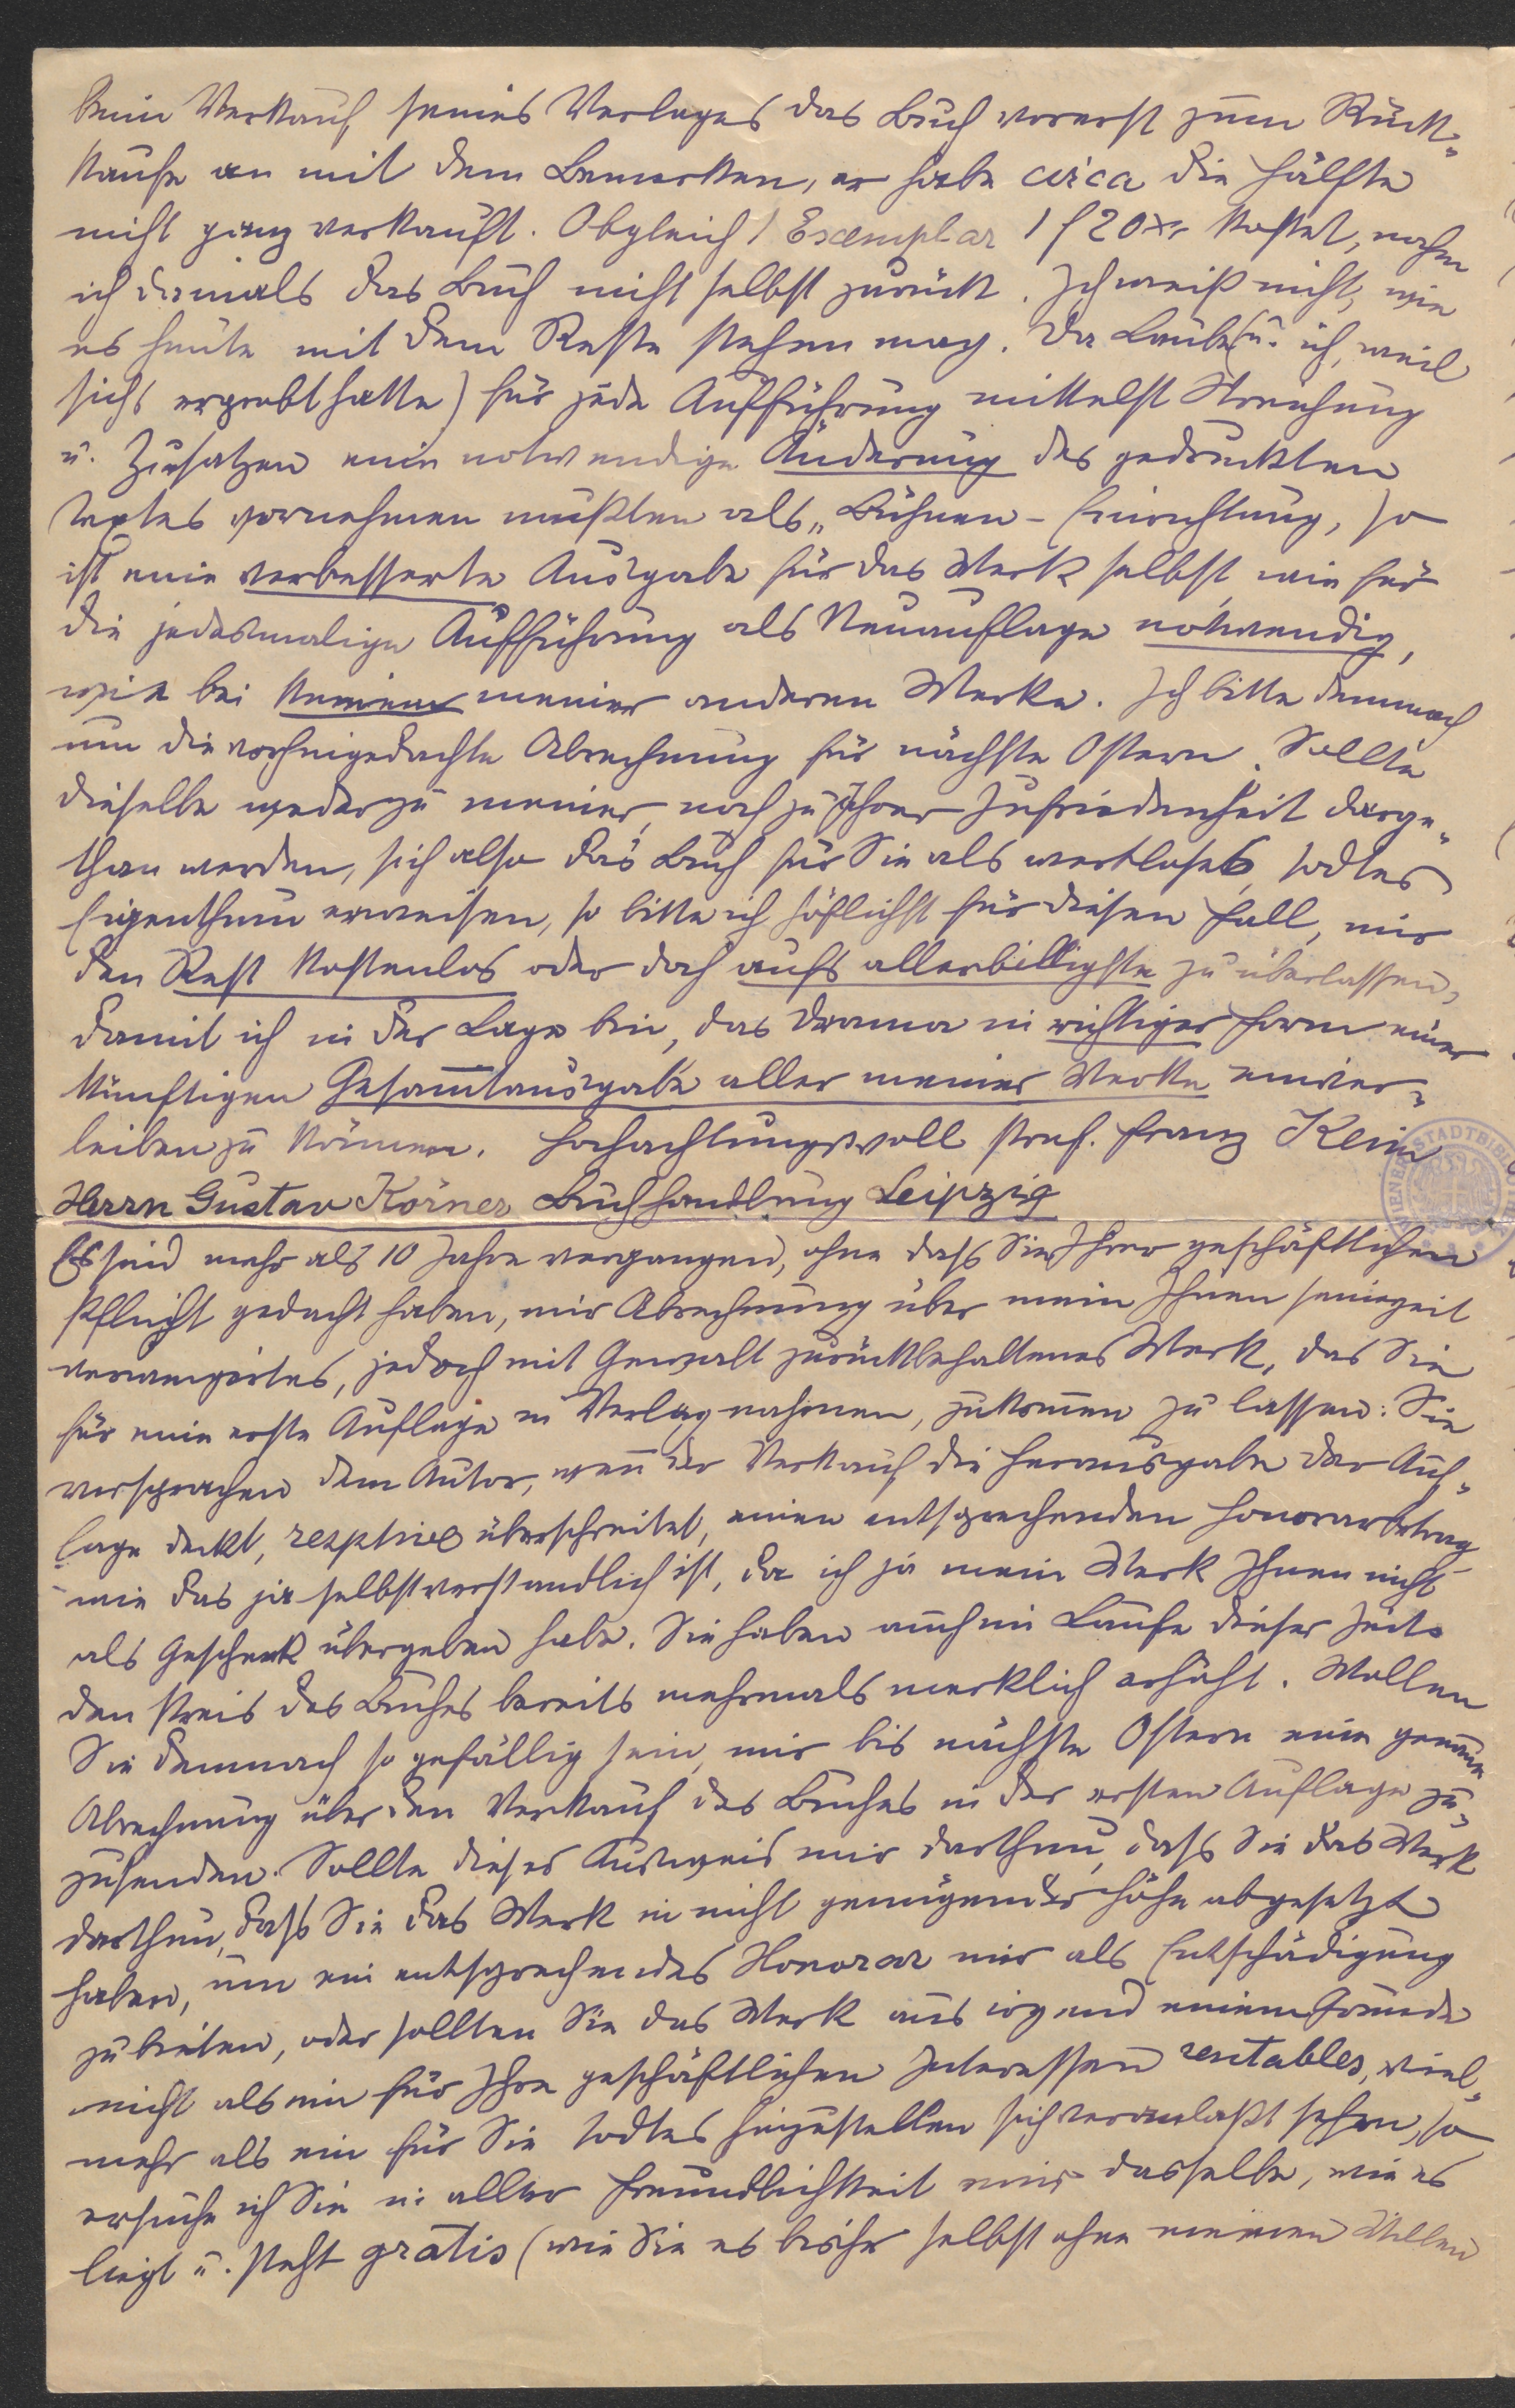 beim Verkauf seines Verlages das Buch vorerst zum Rück-
kaufe an mit dem Bemerken, er habe circa die Hälfte
nicht ganz verkauft. Obgleich 1 Exemplar 1 f 20 xr kostet, nahm
ich damals das Buch nicht selbst zurück. Ich weiß nicht, wie
es heute mit dem Reste stehen mag. Da Laube (u. ich, weil
sichs erprobt hatte) für jede Aufführung mittelst Streichung
u. Zusätzen eine notwendige Änderung des gedruckten
Textes vornehmen mußten als „Bühnen-Einrichtung, so
ist eine verbesserte Ausgabe für das Werk selbst, wie für
die jedesmalige Aufführung als Neuauflage notwendig,
wie bei keinem meiner anderen Werke. Ich bitte demnach
um die vorhergedachte Abrechnung für nächste Ostern. Sollte
dieselbe weder zu meiner, noch zu Ihrer Zufriedenheit darge-
than werden, sich also das Buch für Sie als wertloses, todtes
Eigenthum erweisen, so bitte ich höflichst für diesen Fall, mir
den Rest kostenlos oder doch aufs allerbilligste zu überlassen,
damit ich in der Lage bin, das Drama in richtiger Form einer
künftigen Gesammtausgabe aller meiner Werke einver-
leiben zu können. Hochachtungsvoll Prof. Franz Keim
Herrn Gustav Körner Buchhandlung Leipzig
Es sind mehr als 10 Jahre vergangen, ohne daß Sie Ihrer geschäftlichen
Pflicht gedacht haben, mir Abrechnung über mein Ihnen seinerzeit
verweigertes, jedoch mit Gewalt zurückbehaltenes Werk, das Sie
für eine erste Auflage in Verlag nahmen, zukommen zu lassen: Sie
versprachen dem Autor, wenn der Verkauf die Herausgabe der Auf-
lage deckt, resptive überschreitet, einen entsprechenden Honorarbetrag
wie das ja selbstverständlich ist, da ich ja mein Werk Ihnen nicht
als Geschenk übergeben habe. Sie haben auch im Laufe dieser Zeit
den Preis des Buches bereits mehrmals merklich erhöht. Wollen
Sie demnach so gefällig sein, mir bis nächste Ostern eine genaue
Abrechnung über den Verkauf des Buches in der ersten Auflage zu-
zusenden. Sollte dieser Ausweis mir darthun, daß Sie das Werk
darthun, daß Sie das Werk in nicht genügender Höhe abgesetzt
haben, um ein entsprechendes Honorar mir als Entschädigung
zu bieten, oder sollten Sie das Werk aus irgend einem Grunde
nicht als ein für Ihre geschäftlichen Interessen rentables, viel-
mehr als ein für Sie todtes hinzustellen sich veranlaßt sehen, so
ersuche ich Sie in aller Freundlichkeit mir dasselbe, wie es
liegt u. steht gratis (wie Sie es bisher selbst ohne meinen Willen